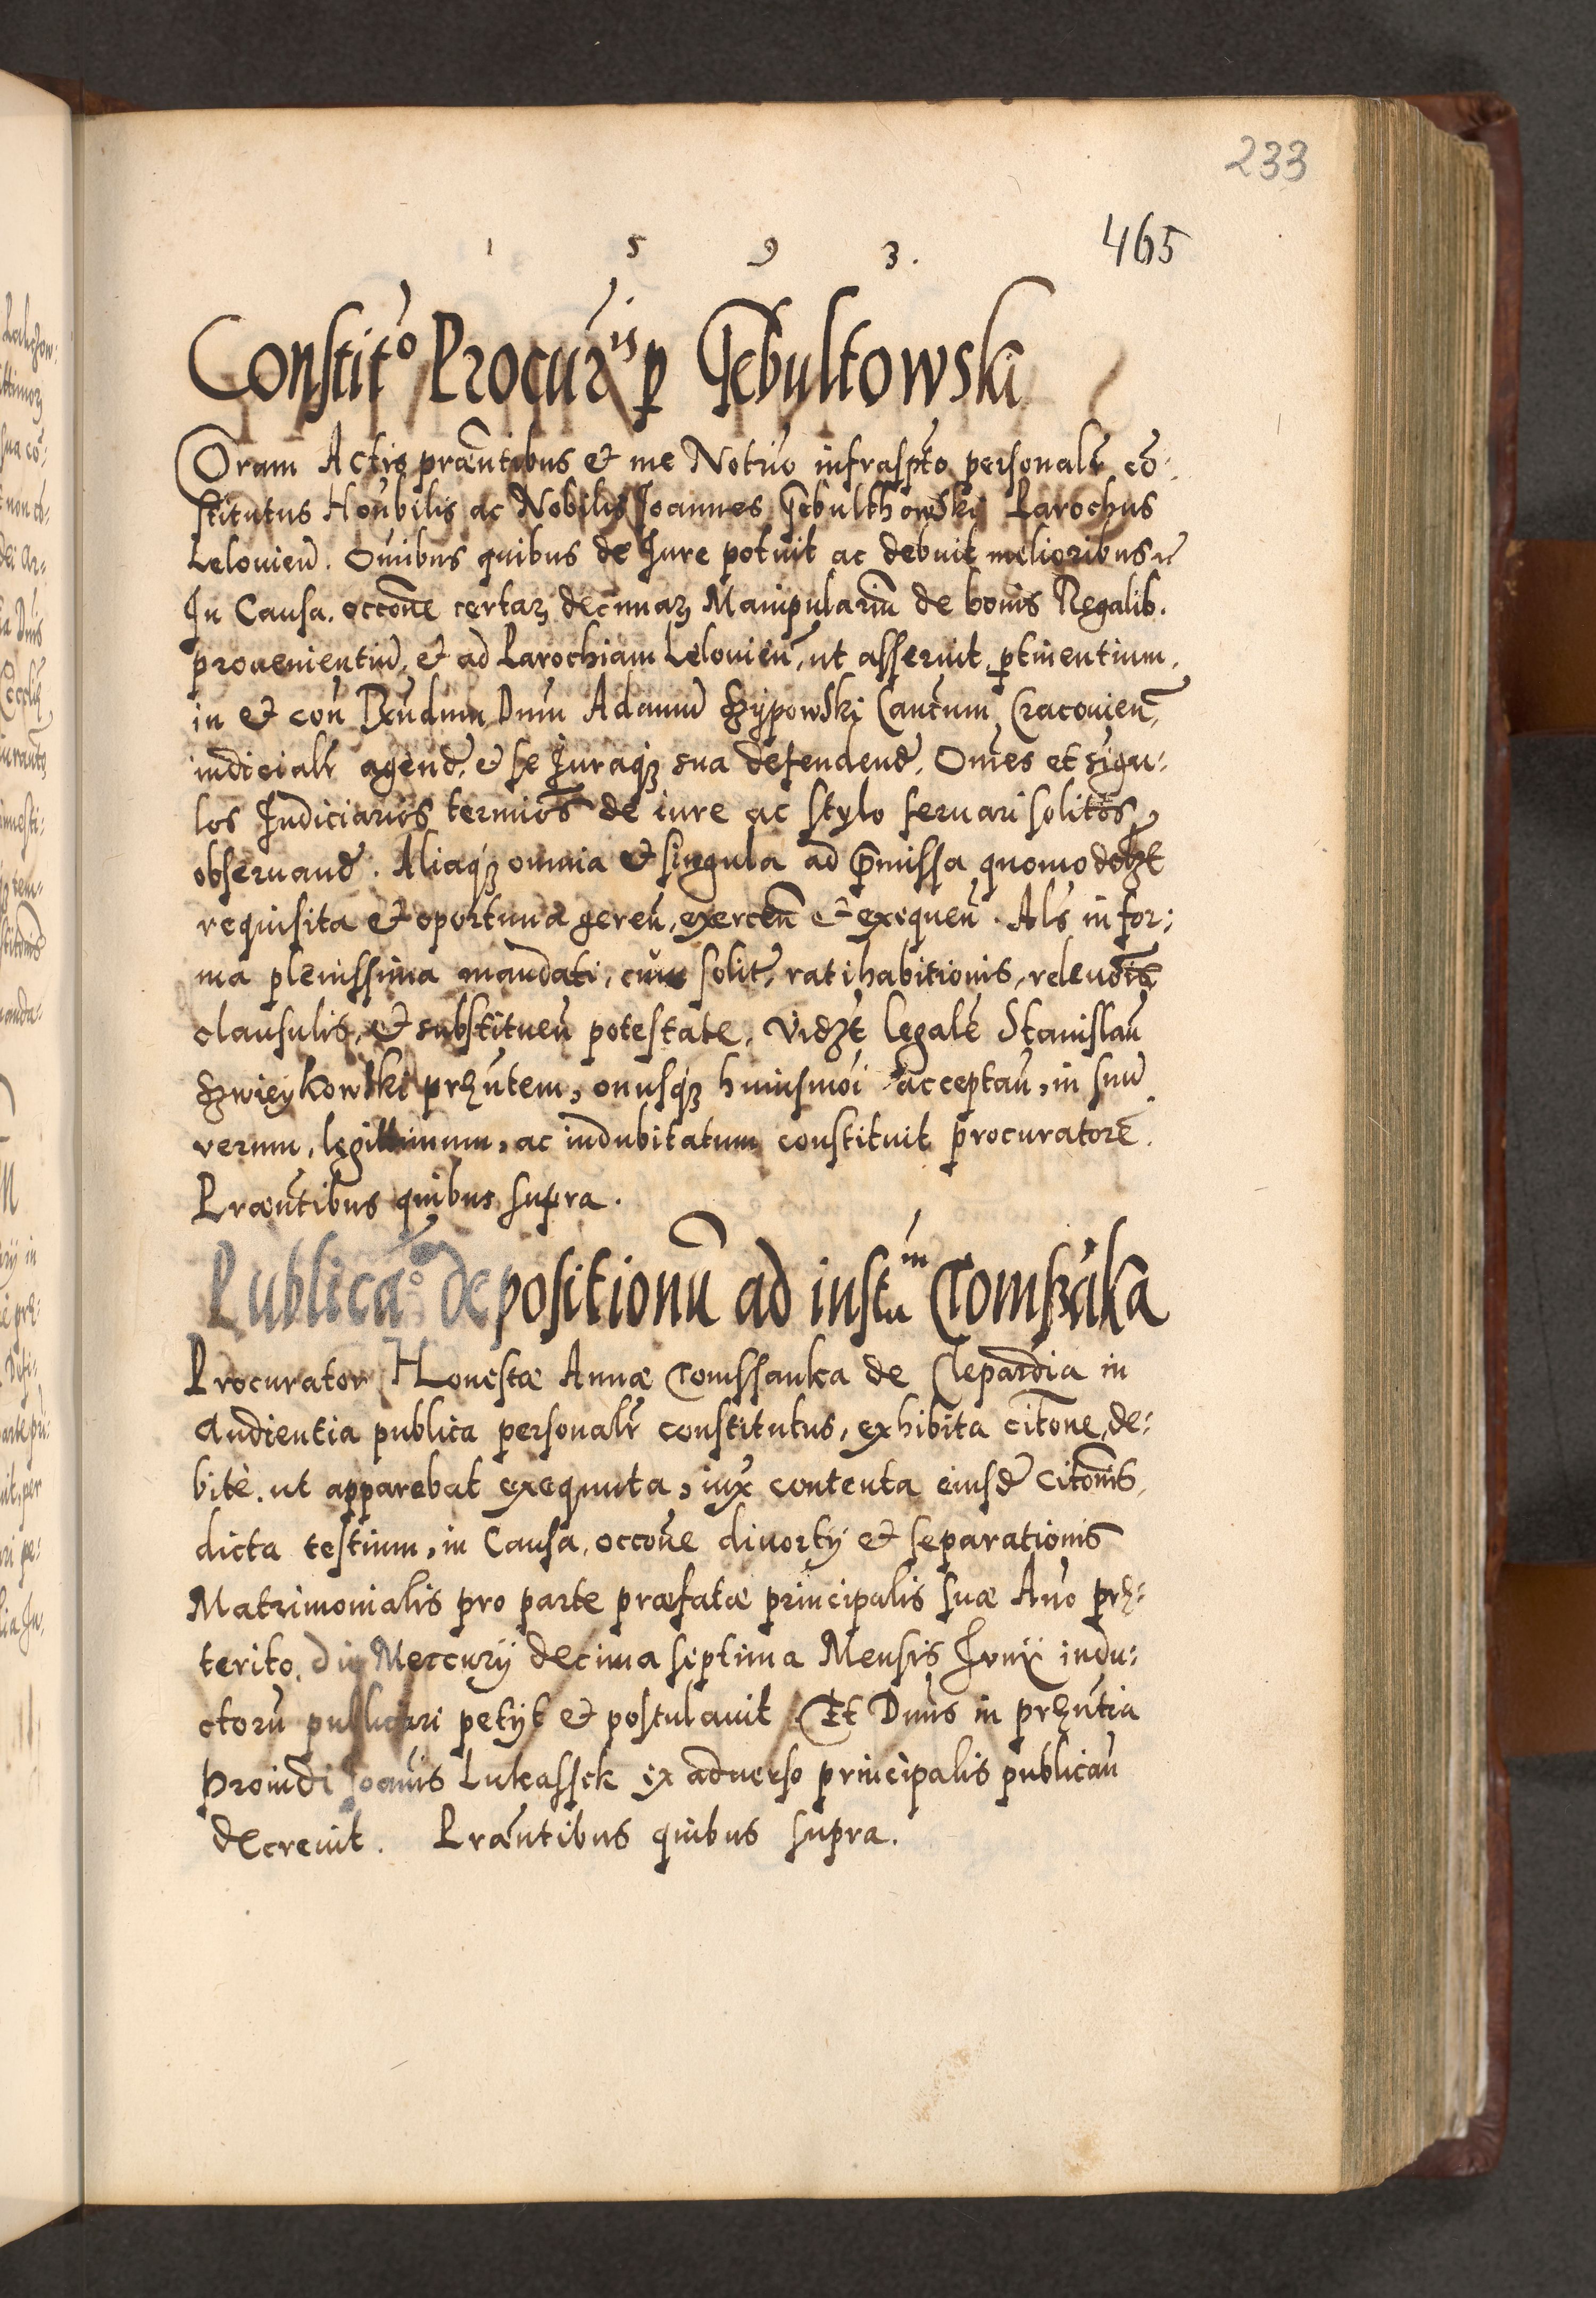 233
1 5 9 3.
465
Constit͠o Procur̃is p Gebultowski
Coram Actis præn̄tibus et me Notr̄io infrasp̄to personalr̄ cō:
stitutus Hon̄bilis ac Nobilis Joannes Gebulthowski Parochus
Lelouien̄. Om̄ibus quibus de Jure potuit ac debuit melioribus
In Causa occ̄one certaꝝ decimaꝝ Manipulariū de bonis Regalib.
prouenientiū, et ad Parochiam Lelouien̄, ut asseruit ptinentium,
in et con̄ R̄ndum Dnm̄ Adamū Hÿpowski Cant̄um Cracouien̄,
iudicialr̄ agend̄, et se Juraqꝫ sua defendend̄. Om̄es et sigu:
los Judiciarios termīos de iure ac stylo seruari solitos
obseruand̄. Aliaqꝫ omnia et singula ad p̄missa quomodolꝫt
requisita et oportuna geren̄, exercen̄ et exequen̄. Als̄ in for:
ma plenissima mandati, cum solit̄, ratihabitionis, releuōis
clausulis, et substituen̄ potestate, Vidꝫt legalē Stanislau̅
Zwieykowski prꝫn̄tem, onusqꝫ huiusmōi acceptan̄, in suū
verum, legittimum, ac indubitatum constituit procuratorē.
Præn̄tibus quibus supra.
Publicaō depositionū ad instam Comszāka
Procurator Honestæ Annæ Comssanka de Clepardia in
Audientia publica personalr̄ constitutus, exhibita cit̄one, de:
bitè, ut apparebat exequuta, iux̄ contenta eiusd̄ cit̄onis,
dicta testium, in Causa, occ̄one diuortÿ et separationis
Matrimonialis pro parte præfatæ principalis suæ An̄o prę:
terito, die Mercurÿ decima septima Mensis Junÿ indu:
ctorū publicari petÿt et postulauit. Et Dn̄us in prꝫn̄tia
Proindi Joan̄is Lukassek ex aduerso principalis publican̄
decreuit. Præn̄tibus quibus supra.